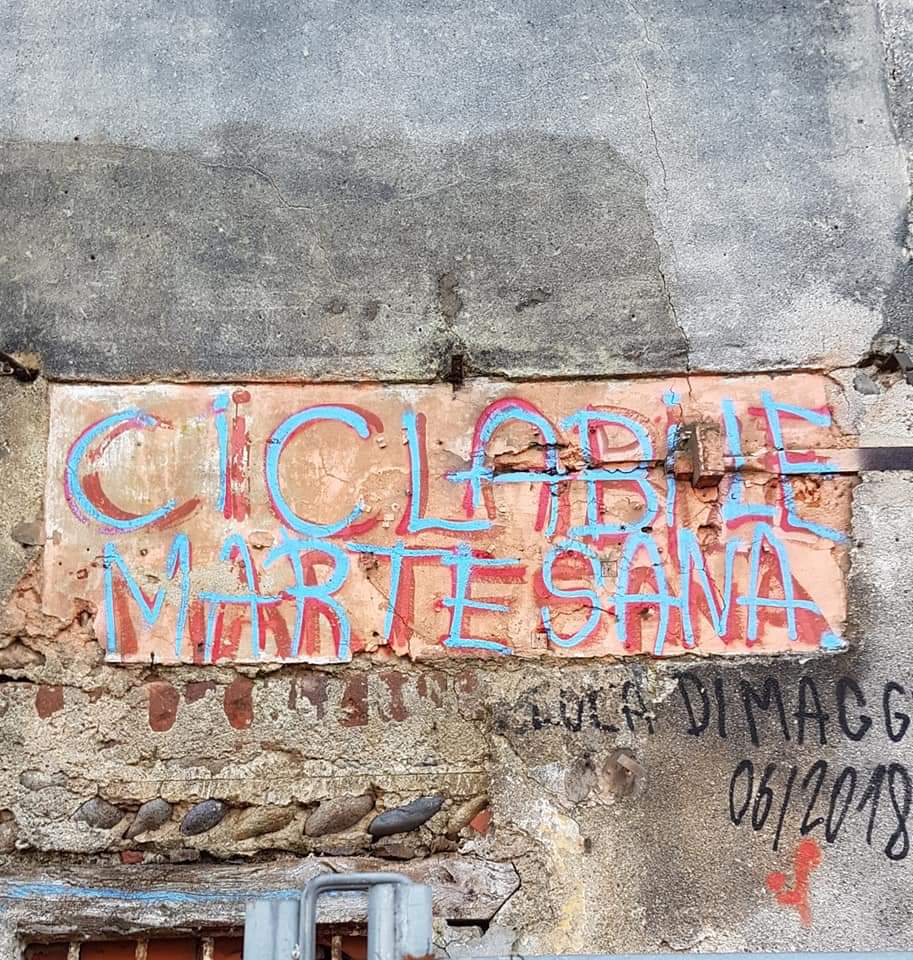 CiCLABiLE
MARTESANA
DI MAGG
06/2018